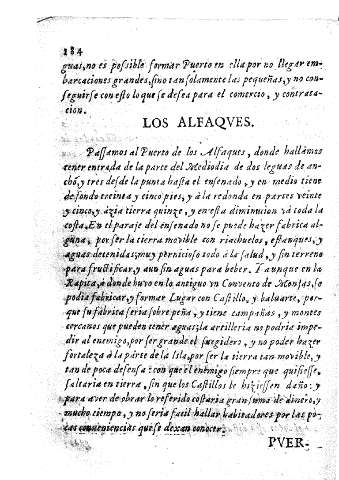 184
guas, no es possible formar Puerto en ella por no llegar em-
barcaciones grandes, sino tan solamente las pequeñas, y no con-
seguirse con esto lo que se desea para el comercio, y contrata-
cion.
LOS ALFAQVES.
Passamos al Puerto de los Alfaques, donde hallamos
tener entrada de la parte del Mediodia de dos leguas de an-
cho, y tres desde la punta hasta el ensenado, y en medio tiene
de fondo treinta y cinco pies, y à la redonda en partes veinte
y cinco, y àzia tierra quinze, y en esta diminucion và toda la
costa. En el paraje del ensenado no se puede hazer fabrica al-
guna, por ser la tierra movible con riachuelos, estanques, y
aguas detenidas; muy pernicioso todo à la salud, y sin terreno
para fructificar, y aun sin aguas para beber. Y aunque en la
Rapita, à donde huvo en lo antiguo un Convento de Monjas, se
podia fabricar, y formar Lugar con Castillo, y baluarte, por-
que su fabrica seria sobre peña, y tiene campañas, y montes
cercanos que pueden tener aguas; la artilleria no podria impe-
dir al enemigo, por ser grande el surgidero, y no poder hazer
fortaleza à la parte de la Isla, por ser la tierra tan movible, y
tan de poca defensa: con que el enemigo siempre que quisiesse,
saltaria en tierra, sin que los Castillos le hiziessen daño: y
para aver de obrar lo referido costaria gran suma de dinero, y
mucho tiempo, y no seria facil hallar habitadores por las po-
cas conveniencias que se dexan conocer.
PVER-